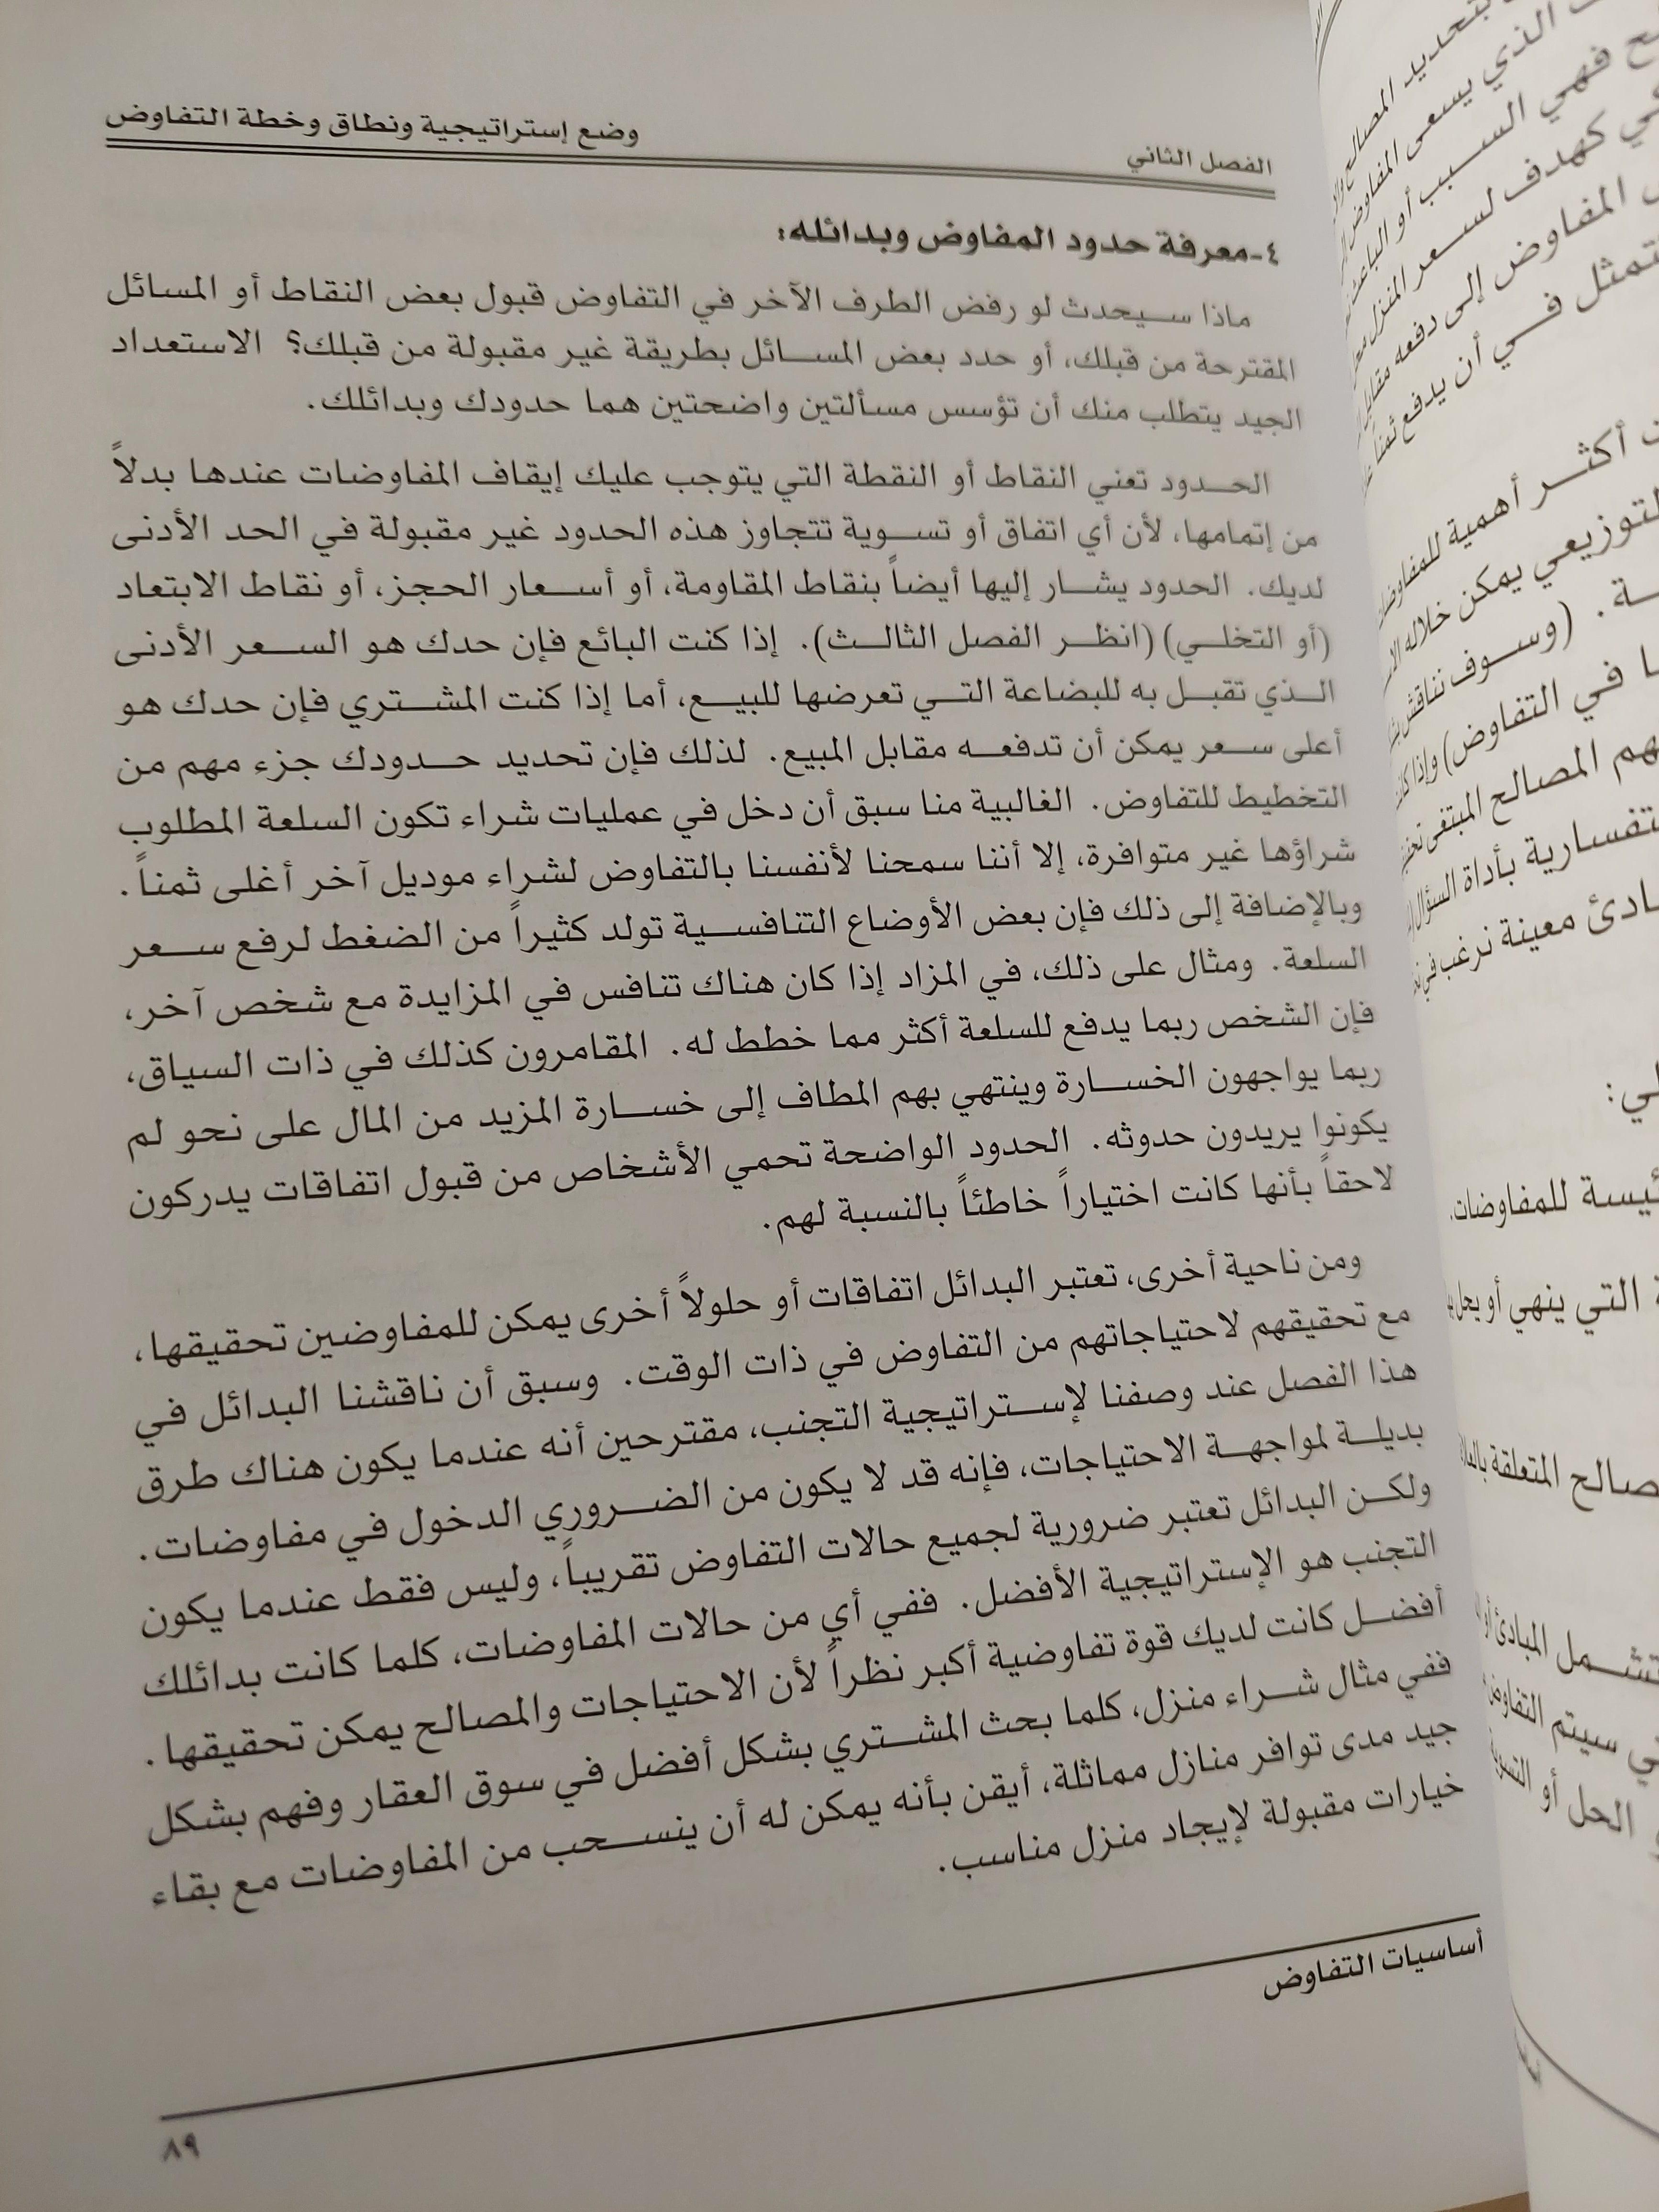 الفصل الثاني
وضع إستراتيجية ونطاق وخطة التفاوض
٤-معرفة حدود المفاوض وبدائله:
ماذا سيحدث لو رفض الطرف الآخر في التفاوض قبول بعض النقاط أو المسائل
المقترحة من قبلك، أو حدد بعض المسائل بطريقة غير مقبولة من قبلك؟ الاستعداد
الجيد يتطلب منك أن تؤسس مسألتين واضحتين هما حدودك وبدائلك.
الحدود تعني النقاط أو النقطة التي يتوجب عليك إيقاف المفاوضات عندها بدلاً
من إتمامها، لأن أي اتفاق أو تسوية تتجاوز هذه الحدود غير مقبولة في الحد الأدنى
لديك. الحدود يشار إليها أيضاً بنقاط المقاومة، أو أسعار الحجز، أو نقاط الابتعاد
(أو التخلي) (انظر الفصل الثالث). إذا كنت البائع فإن حدك هو السعر الأدنى
الذي تقبل به للبضاعة التي تعرضها للبيع، أما إذا كنت المشتري فإن حدك هو
أعلى سعر يمكن أن تدفعه مقابل المبيع. لذلك فإن تحديد حدودك جزء مهم من
التخطيط للتفاوض. الغالبية منا سبق أن دخل في عمليات شراء تكون السلعة المطلوب
شراؤها غير متوافرة، إلا أننا سمحنا لأنفسنا بالتفاوض لشراء موديل آخر أغلى ثمناً.
وبالإضافة إلى ذلك فإن بعض الأوضاع التنافسية تولد كثيراً من الضغط لرفع سعر
السلعة. ومثال على ذلك، في المزاد إذا كان هناك تنافس في المزايدة مع شخص آخر،
فإن الشخص ربما يدفع للسلعة أكثر مما خطط له. المقامرون كذلك في ذات السياق،
ربما يواجهون الخسارة وينتهي بهم المطاف إلى خسارة المزيد من المال على نحو لم
يكونوا يريدون حدوثه. الحدود الواضحة تحمي الأشخاص من قبول اتفاقات يدركون
لاحقاً بأنها كانت اختياراً خاطئاً بالنسبة لهم.
ومن ناحية أخرى، تعتبر البدائل اتفاقات أو حلولاً أخرى يمكن للمفاوضين تحقيقها،
مع تحقيقهم لاحتياجاتهم من التفاوض في ذات الوقت. وسبق أن ناقشنا البدائل في
هذا الفصل عند وصفنا لإستراتيجية التجنب، مقترحين أنه عندما يكون هناك طرق
بديلة لمواجهة الاحتياجات، فإنه قد لا يكون من الضروري الدخول في مفاوضات.
ولكن البدائل تعتبر ضرورية لجميع حالات التفاوض تقريباً، وليس فقط عندما يكون
التجنب هو الإستراتيجية الأفضل. ففي أي من حالات المفاوضات، كلما كانت بدائلك
أفضل كانت لديك قوة تفاوضية أكبر نظراً لأن الاحتياجات والمصالح يمكن تحقيقها.
ففي مثال شراء منزل، كلما بحث المشتري بشكل أفضل في سوق العقار وفهم بشكل
جيد مدى توافر منازل مماثلة، أيقن بأنه يمكن له أن ينسحب من المفاوضات مع بقاء
خيارات مقبولة لإيجاد منزل مناسب.
أساسيات التفاوض
٨٩
بتحديد المصالح
الذي يسعى المفاوض
فهي السبب أو الباعث
كهدف لسعر المنزل
المفاوض إلى دفعه مقابل
في أن يدفع ثمناً
أكثر أهمية للمفاوضات
يمكن خلاله
(وسوف نناقش
في التفاوض) وإذا كانت
المصالح المبتغى
بأداة السؤال
معينة نرغب في
للمفاوضات.
التي ينهي أو يحل
المتعلقة
المبادئ أو
سيتم التفاوض
الحل أو التسوية